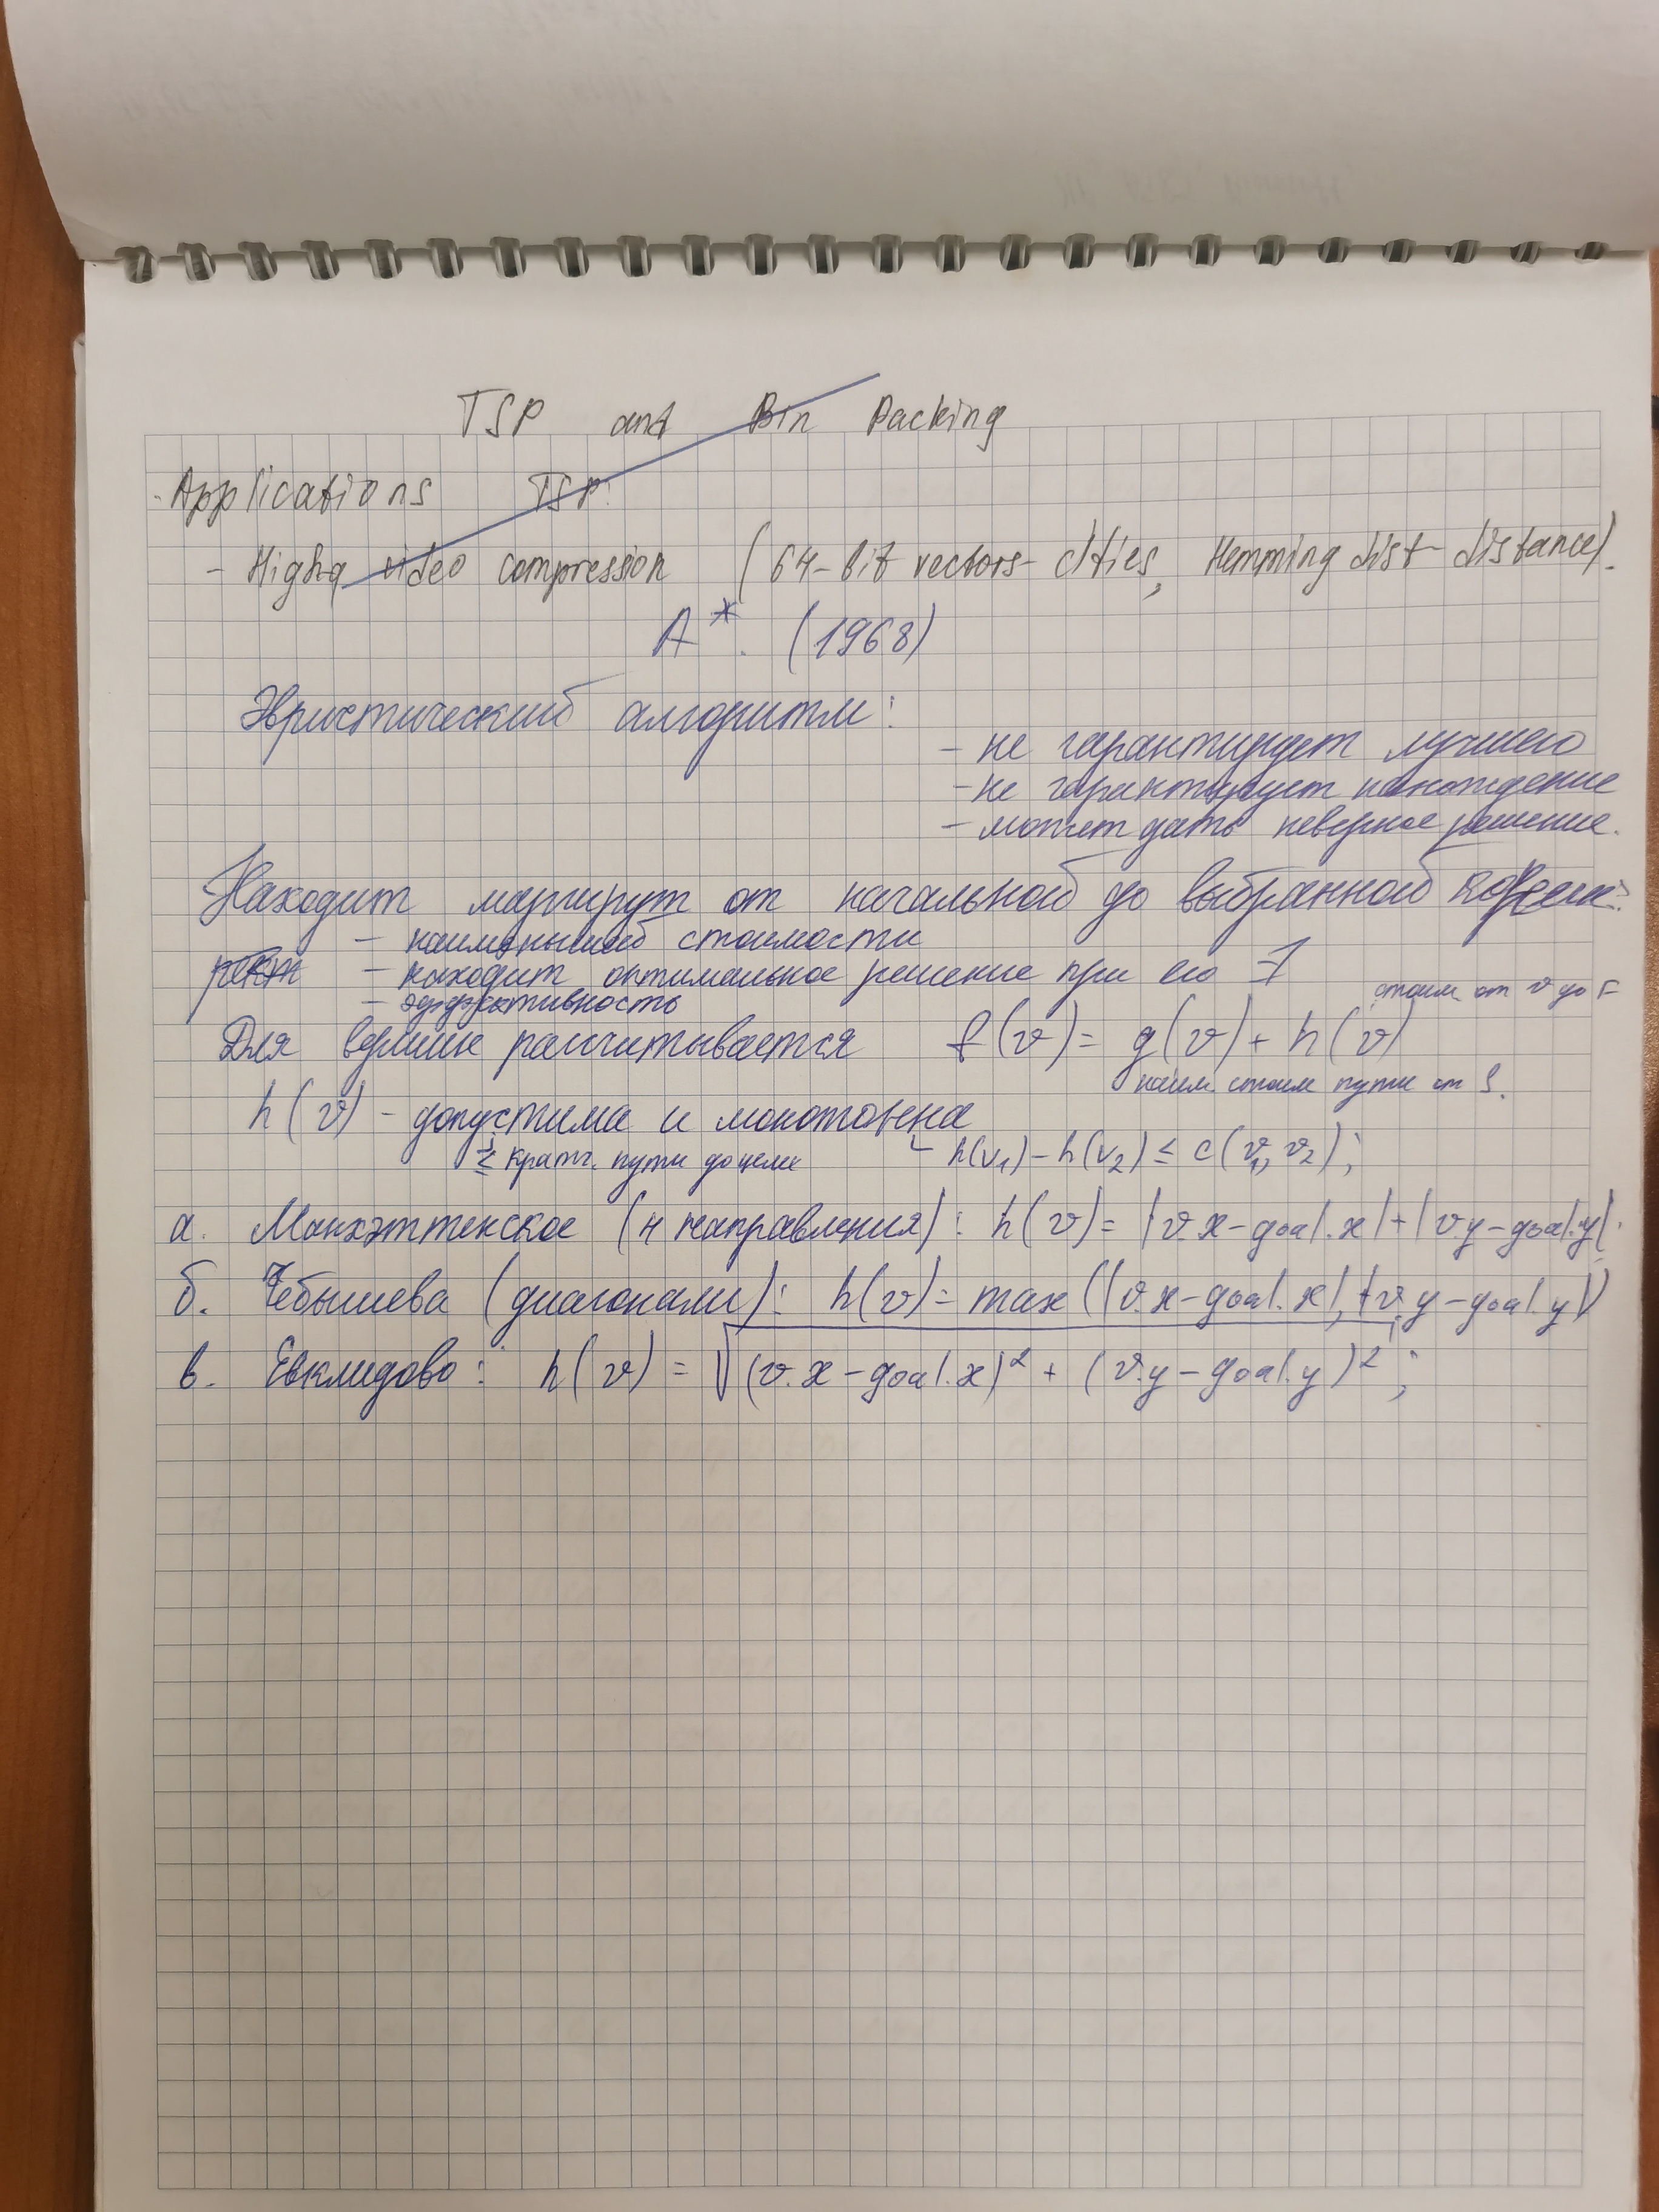 TSP and Bin Packing
Applications TSP:
- High-q video compression (64-bit vectors - cities, Hemming dist - distance).
A* (1968)
Эвристический алгоритм:
- не гарантирует лучшего
- не гарантирует нахождение
- может дать неверное решение.
Находит маршрут от начальной до выбранной
- наименьшей стоимости
- находит оптимальное решение при его ∃
- эффективность
стоим. от v до F
Для вершин рассчитывается f(v) = g(v) + h(v)
наим. стоим пути от S.
h(v) - допустима и монотонна
≤ кратч. пути до цели h(v₁) - h(v₂) ≤ c(v₁, v₂);
а. Манхэттенское (4 направления): h(v) = |v.x - goal.x| + |v.y - goal.y|.
б. Чебышева (диагонали): h(v) = max(|v.x - goal.x|, |v.y - goal.y|)
в. Евклидово: h(v) = √((v.x - goal.x)² + (v.y - goal.y)²);